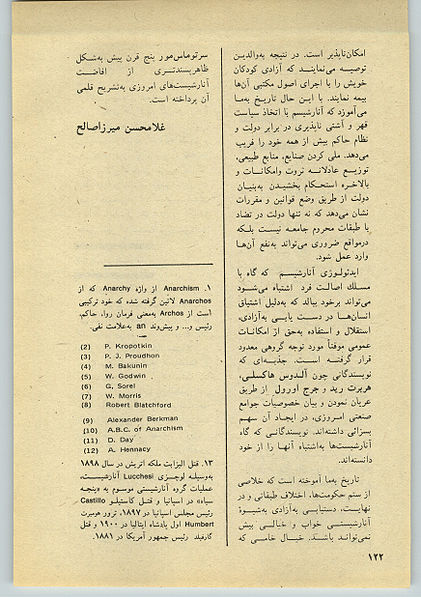 امکان‌ناپذیر است. در نتیجه به‌والدین
توصیه می‌نمایند که آزادی کودکان
خویش را با اجرای اصول مکتبی آن‌ها
بیمه نمایند. با این حال تاریخ به‌ما
می‌آموزد که آنارشیسم با اتخاذ سیاست
قهر و آشتی ناپذیری در برابر دولت و
نظام حاکم بیش از همه خود را فریب
می‌دهد. ملی کردن صنایع، منابع طبیعی،
توزیع عادلانه ثروت وامکانات و
بالاخره استحکام بخشیدن به‌بنیان
دولت از طریق وضع قوانین و مقررات
نشان می‌دهد که نه تنها دولت در تضاد
با طبقات محروم جامعه نیست بلکه
درمواقع ضروری می‌تواند به‌نفع آن‌ها
وارد عمل شود.
ایدئولوژی آنارشیسم که گاه با
مسلك اصالت فرد اشتباه می‌شود
می‌تواند برخود ببالد که به‌دلیل اشتیاق
انسان‌ها در دست یابی به‌آزادی،
استقلال و استفاده به‌حق از امکانات
عمومی موقتاً مورد توجه گروهی معدود
قرار گرفته است. جذبه‌ای که
نویسندگانی چون آلدوس هاکسلی،
هربرت رید و جرج اورول از طریق
عریان نمودن و بیان خصوصیات جوامع
صنعتی امروزی، در ایجاد آن سهم
بسزائی داشته‌اند. نویسندگانی که گاه
آنارشیست‌ها به‌اشتباه آنها را از خود
دانسته‌اند.
تاریخ به‌ما آموخته است که خلاصی
از ستم حکومت‌ها، اختلاف طبقاتی و در
نهایت، دستیابی به‌آزادی به‌شیوهٔ
آنارشیستی خواب و خیالی بیش
نمی‌تواند باشد. خیال خامی که
سرتوماس‌مور پنج قرن پیش به‌شکل
ظاهرپسندتری از افاضت
آنارشیست‌های امروزی به‌تشریح قلمی
آن پرداخته است.
غلامحسن میرزاصالح
۱. Anarchism از واژه Anarchy که از
Anarchos لاتین گرفته شده که خود ترکیبی
است از Archos به‌معنی فرمان روا، حاکم،
رئیس و... و پیش‌وند an به‌علامت نفی.
(2) P. Kropotkin
(3) P. J. Proudhon
(4) M. Bakunin
(5) W. Godwin
(6) G. Sorel
(7) W. Morris
(8) Robert Blatchford
(9) Alexander Berkman
(10) A.B.C. of Anarchism
(11) D. Day
(12) A. Hennacy
۱۳. قتل الیزابت ملکه اتریش در سال ۱۸۹۸
به‌وسیله لوچزی Lucchesi آنارشیست،
عملیات گروه آنارشیستی موسوم به «پنجه
سیاه» در اسپانیا و قتل کاستیلو Castillo
رئیس مجلس اسپانیا در ۱۸۹۷، ترور هومبرت
Humbert اول پادشاه ایتالیا در ۱۹۰۰ و قتل
گارفیلد رئیس جمهور آمریکا در ۱۸۸۱.
۱۲۲